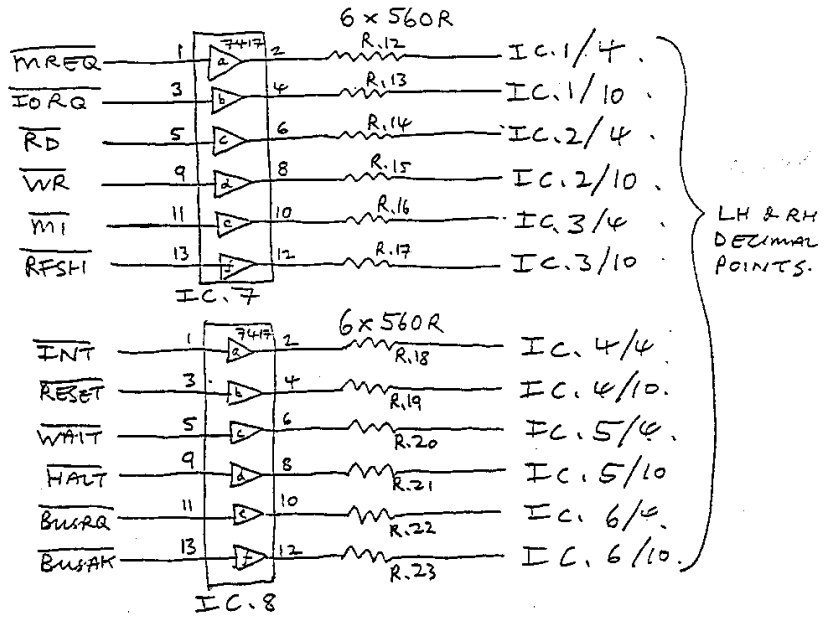 6 x 560R
MREQ 1 a 7417 2 R.12 IC.1/4
IORQ 3 b 4 R.13 IC.1/10
RD 5 c 6 R.14 IC.2/4
WR 9 d 8 R.15 IC.2/10
M1 11 e 10 R.16 IC.3/4
RFSH 13 f 12 R.17 IC.3/10
IC.7
LH & RH
DECIMAL
POINTS.
6 x 560R
INT 1 a 7417 2 R.18 IC.4/4
RESET 3 b 4 R.19 IC.4/10.
WAIT 5 c 6 R.20 IC.5/4.
HALT 9 d 8 R.21 IC.5/10
BUSRQ 11 e 10 R.22 IC.6/4.
BUSAK 13 f 12 R.23 IC.6/10.
IC.8